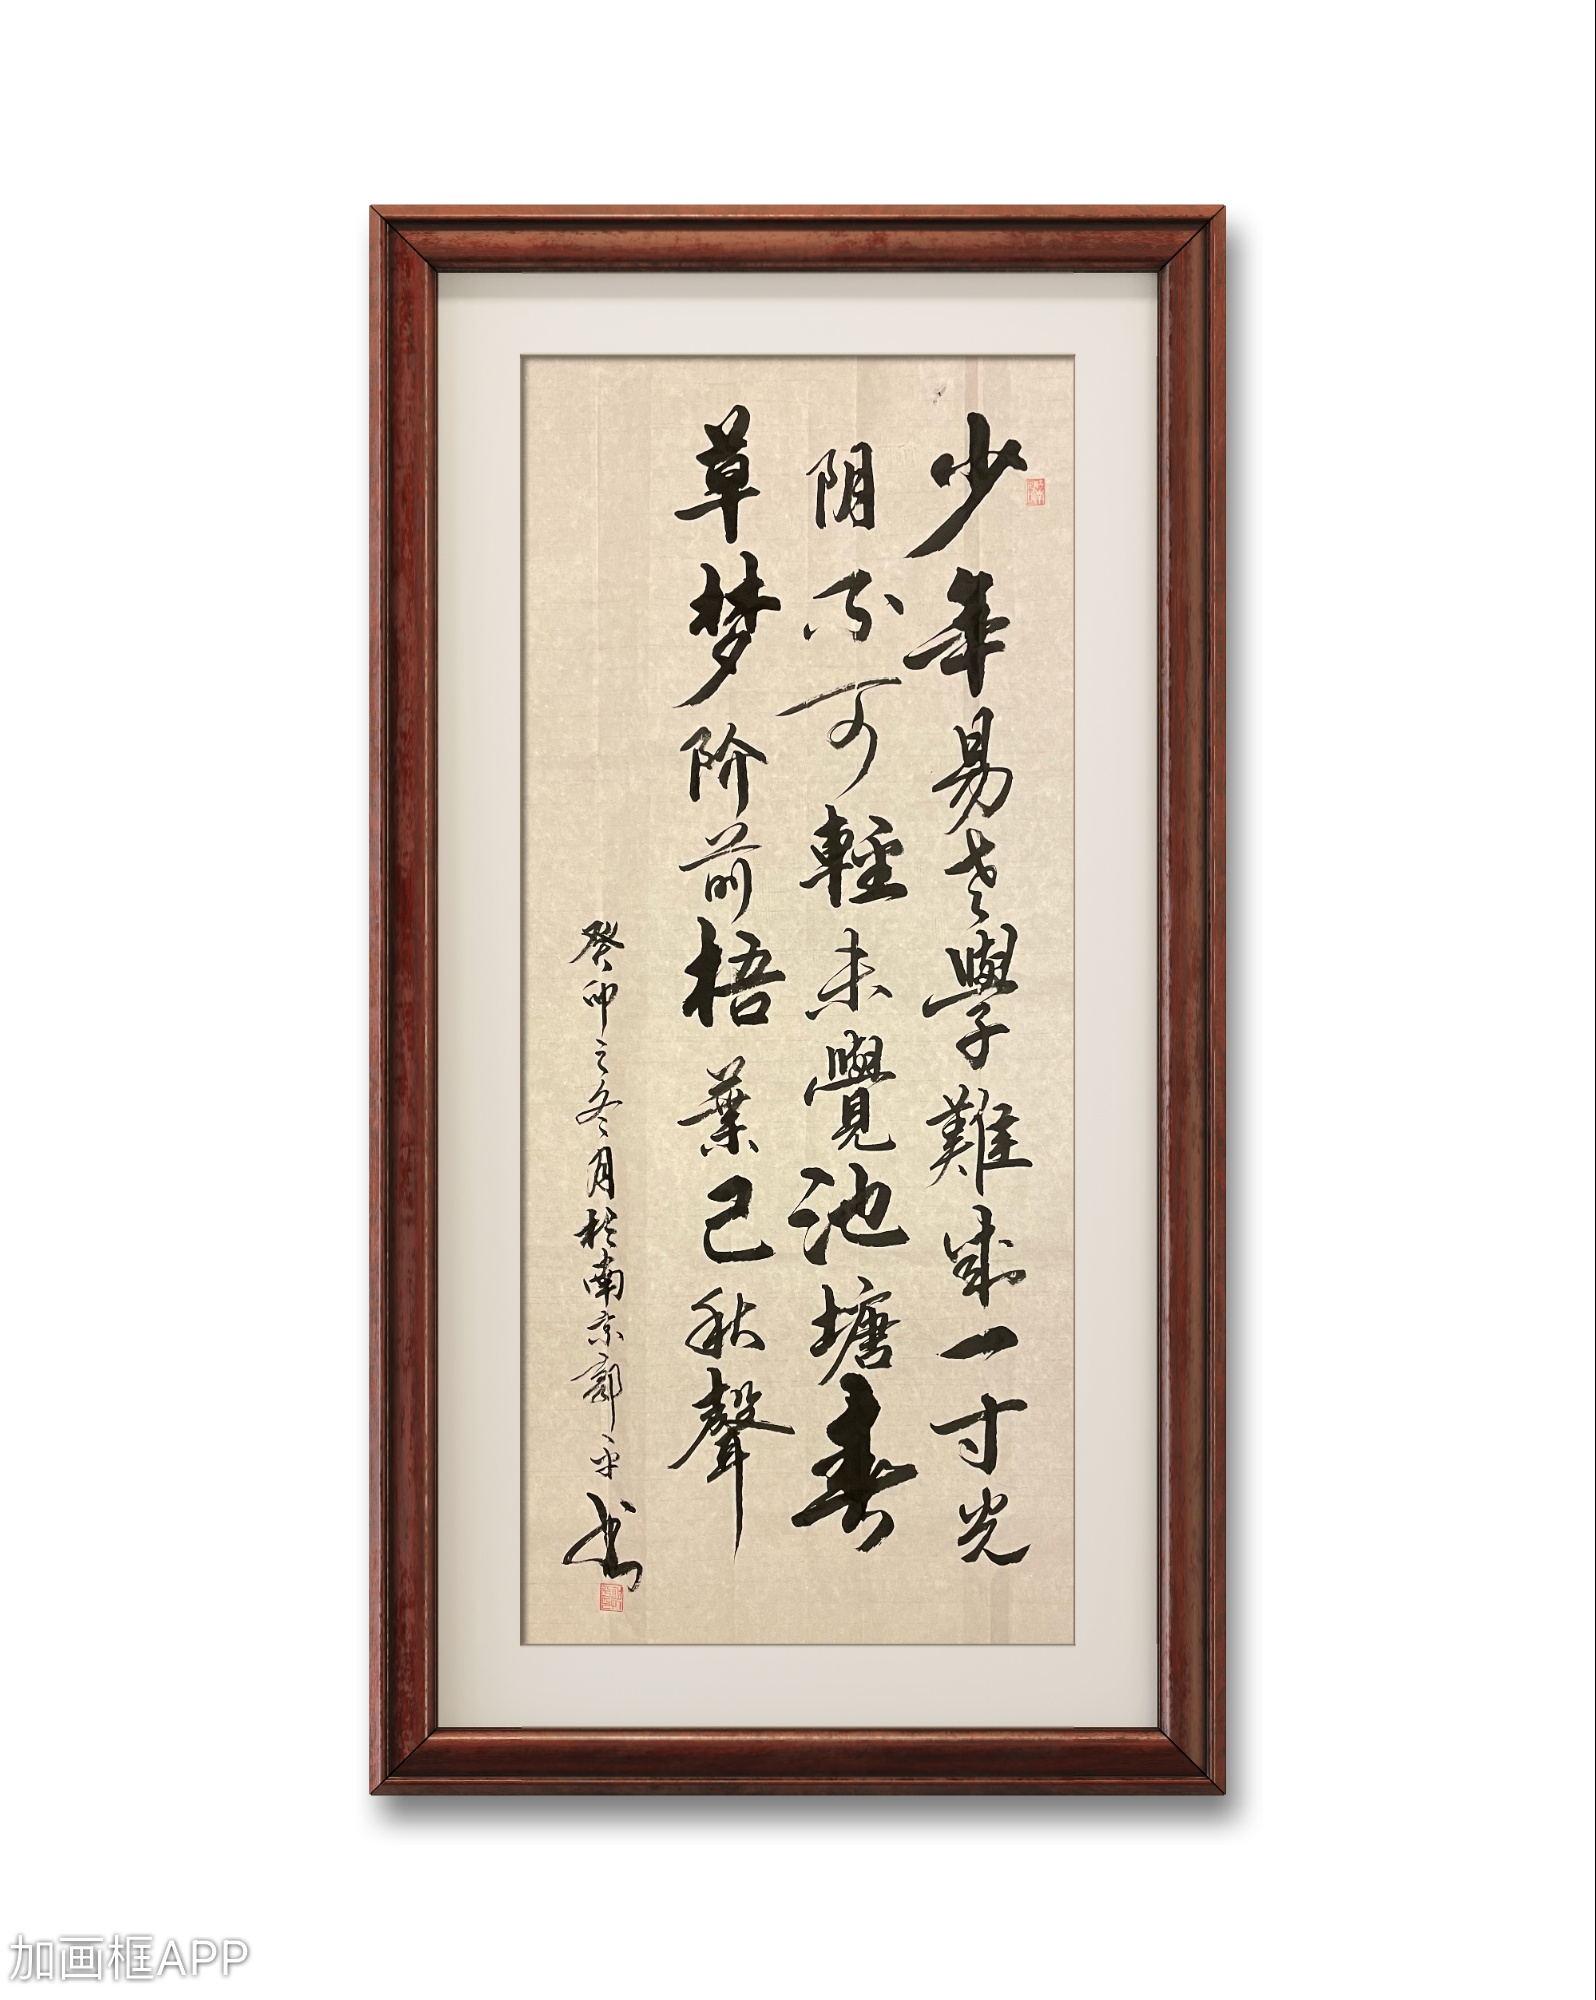 少年易老學難成一寸光
阴不可輕未覺池塘春
草梦阶前梧葉己秋聲
癸卯之冬月於南京郭平书
加画框APP